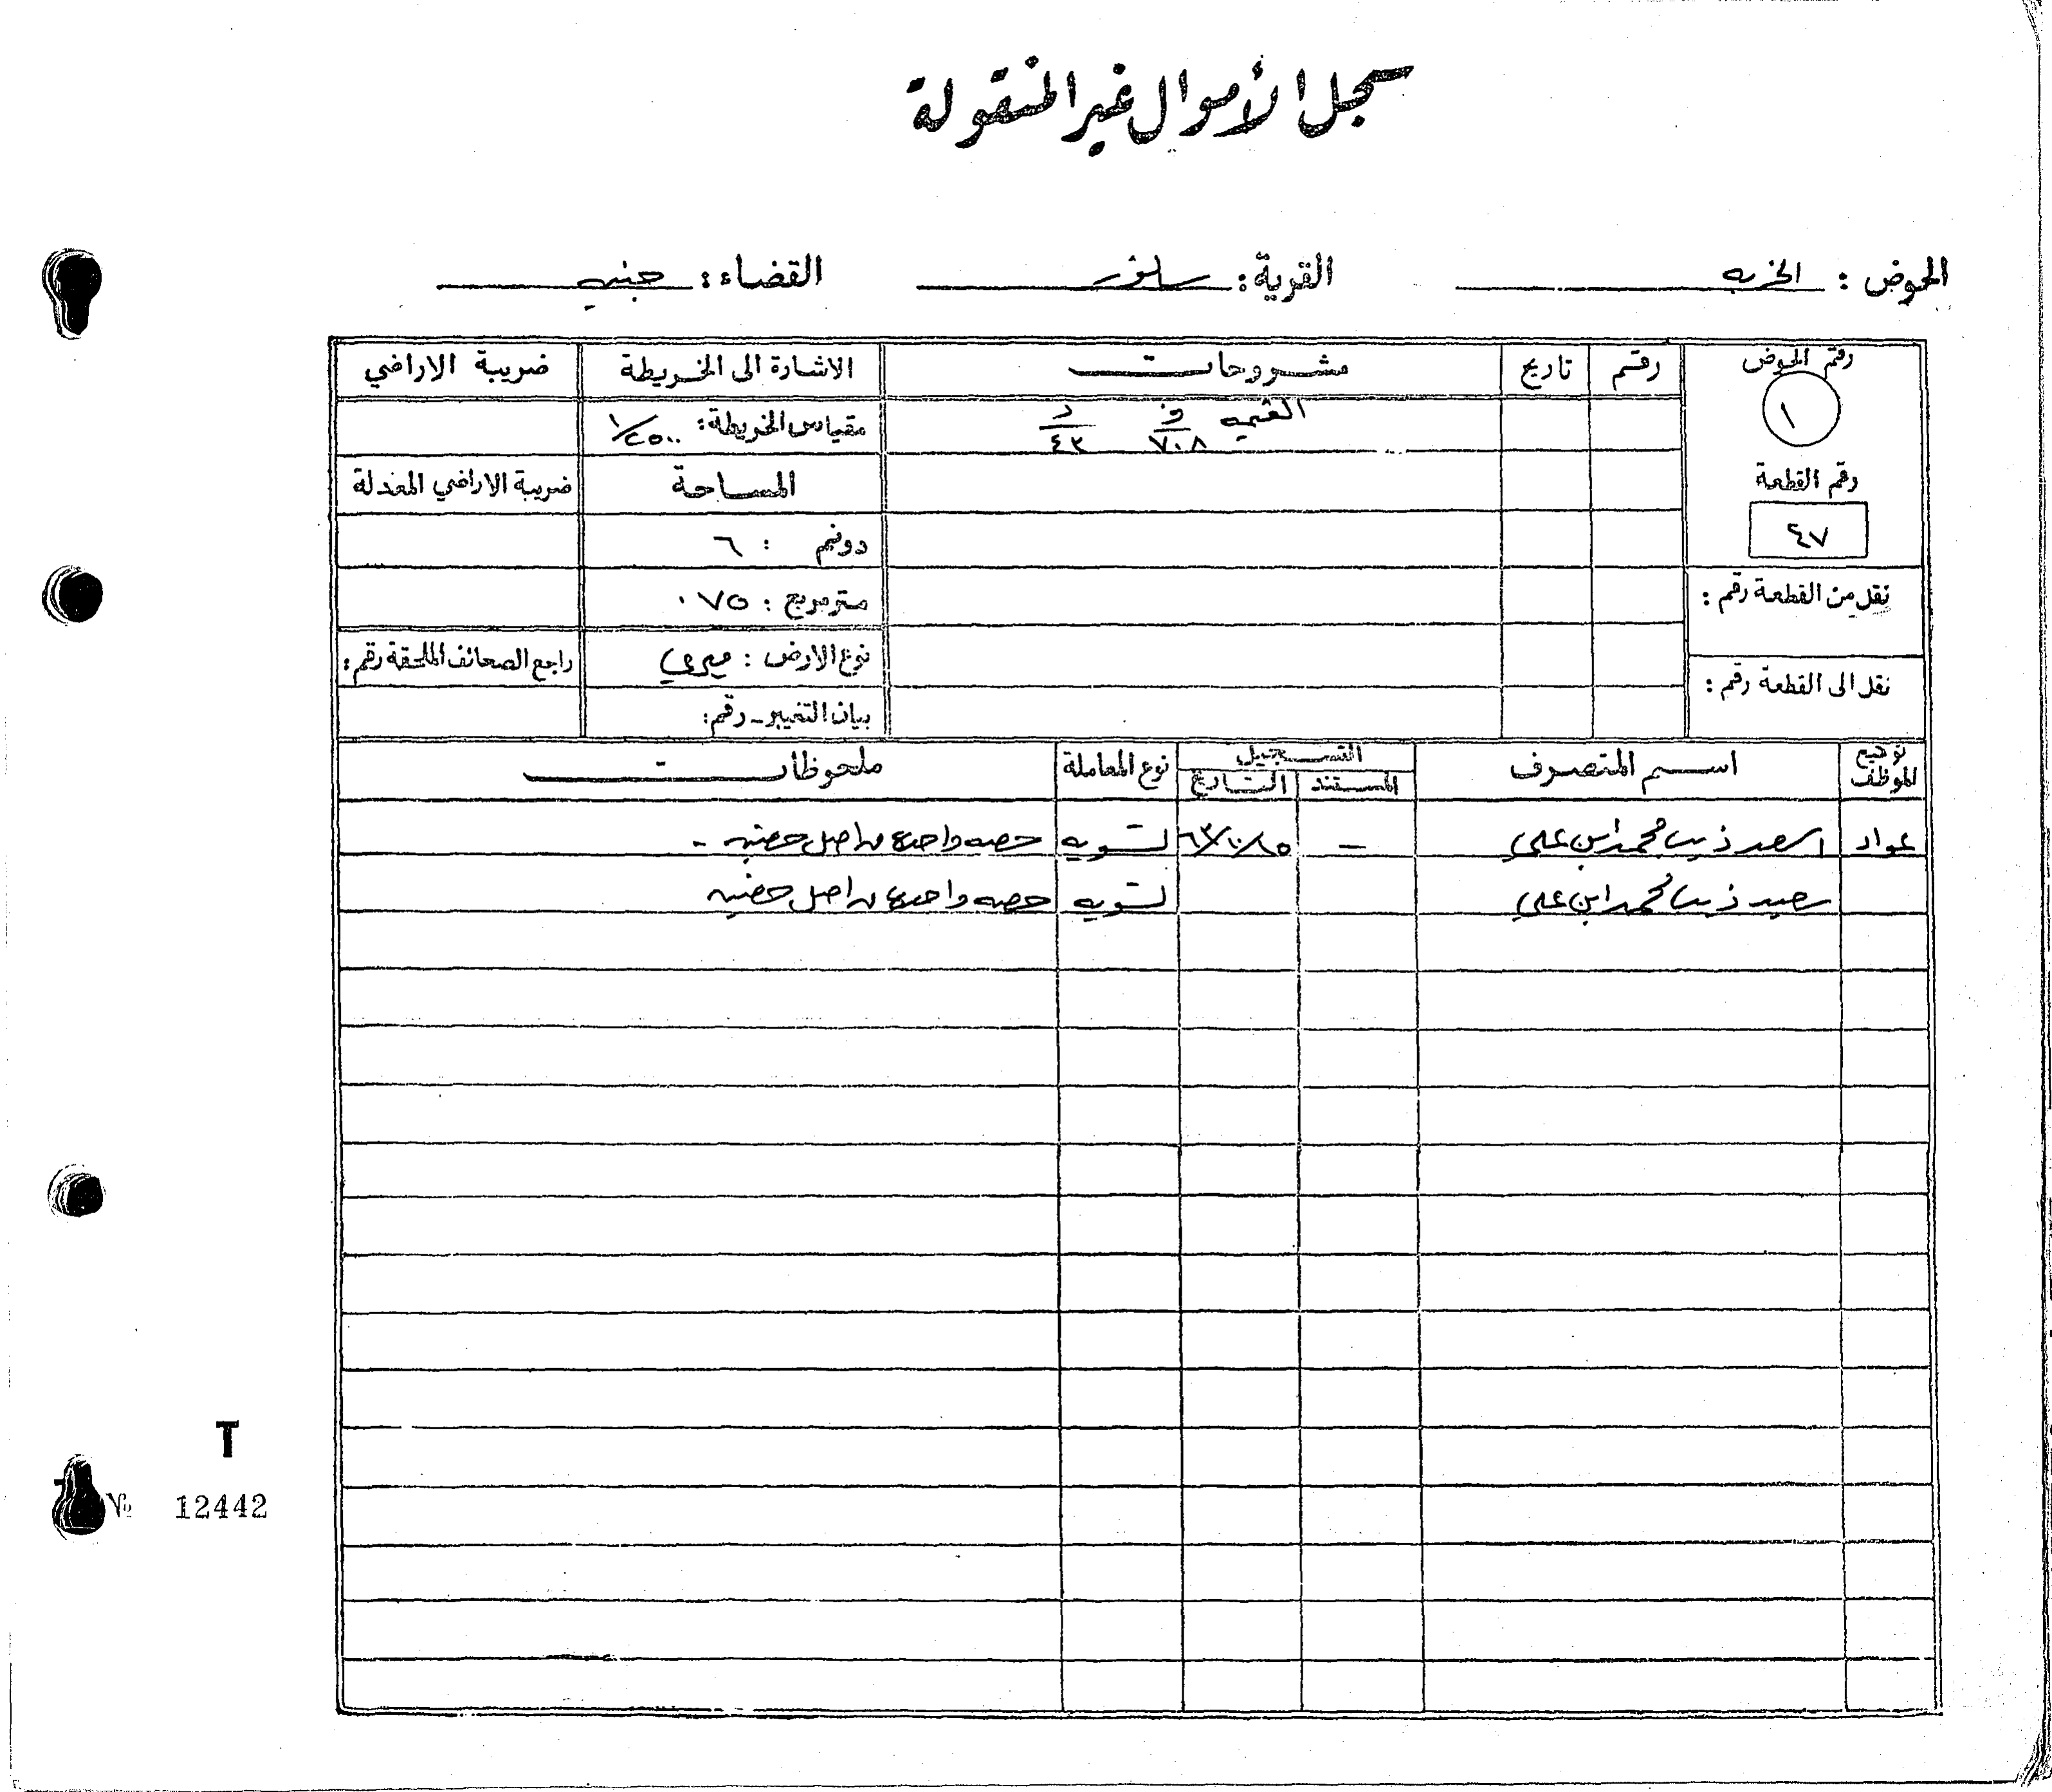 سجل الأموال غير المنقولة
الحوض : الخربه القرية : القضاء : جنين
رقم الحوض رقم تاريخ مشروحات الاشارة الى الخريطة ضريبة الاراضي
١ القيمه ف ٧٠٨ د ٤٣ مقياس الخريطة : ١/٢٥٠٠
رقم القطعة المساحة ضريبة الاراضي المعدلة
٤٧ دونم : ٦
نقل من القطعة رقم : متر مربع : ٠٧٥
نوع الارض : ميري راجع الصحائف الملحقة رقم :
نقل الى القطعة رقم : بيان التغيير - رقم :
توقيع الموظف اسم المتصرف التسجيل نوع المعاملة ملحوظات
المستند التاريخ
عواد اسعد ذيب محمد ابن علي — تسويه حصه واحدة من اصل حصتين -
سعيد ذيب محمد ابن علي تسويه حصه واحدة من اصل حصتين
T
№ 12442